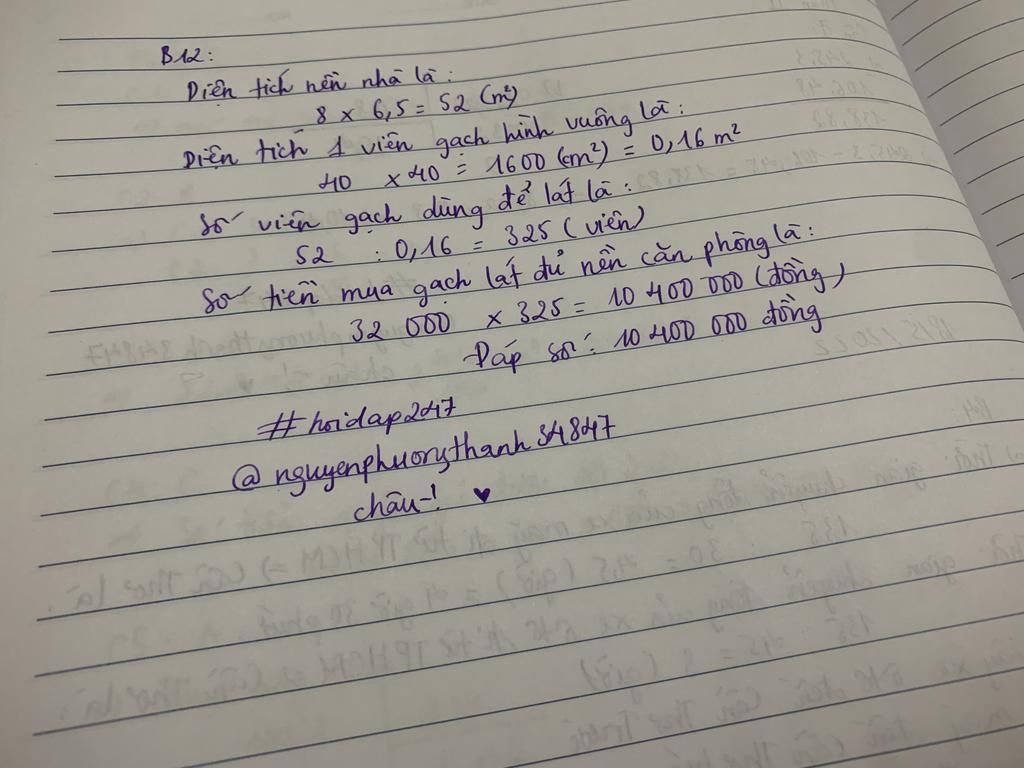 B12:
Diện tích nền nhà là:
8 x 6,5 = 52 (m²)
Diện tích 1 viên gạch hình vuông là:
40 x 40 = 1600 (cm²) = 0,16 m²
Số viên gạch dùng để lát là:
52 : 0,16 = 325 (viên)
Số tiền mua gạch lát đủ nền căn phòng là:
32 000 x 325 = 10 400 000 (đồng)
Đáp số: 10 400 000 đồng
#hoidap247
@nguyenphuongthanh34847
châu-! ♥